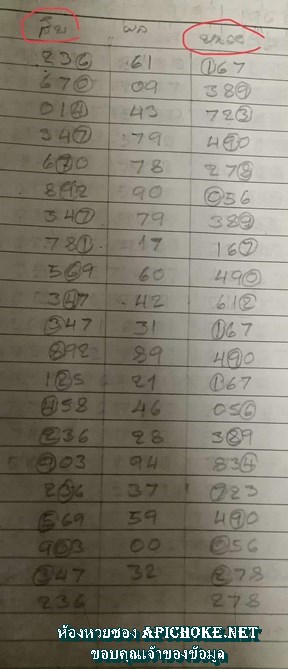 สิบ ผล หน่วย
236 61 167
670 09 389
014 43 723
347 79 490
670 78 278
892 90 056
347 79 389
781 17 167
569 60 490
347 42 612
347 31 167
892 89 490
125 21 167
458 46 056
236 28 389
903 94 834
236 37 723
569 59 490
903 00 056
347 32 278
236 278
ห้องหวยซอง APICHOKE.NET
ขอบคุณเจ้าของข้อมูล